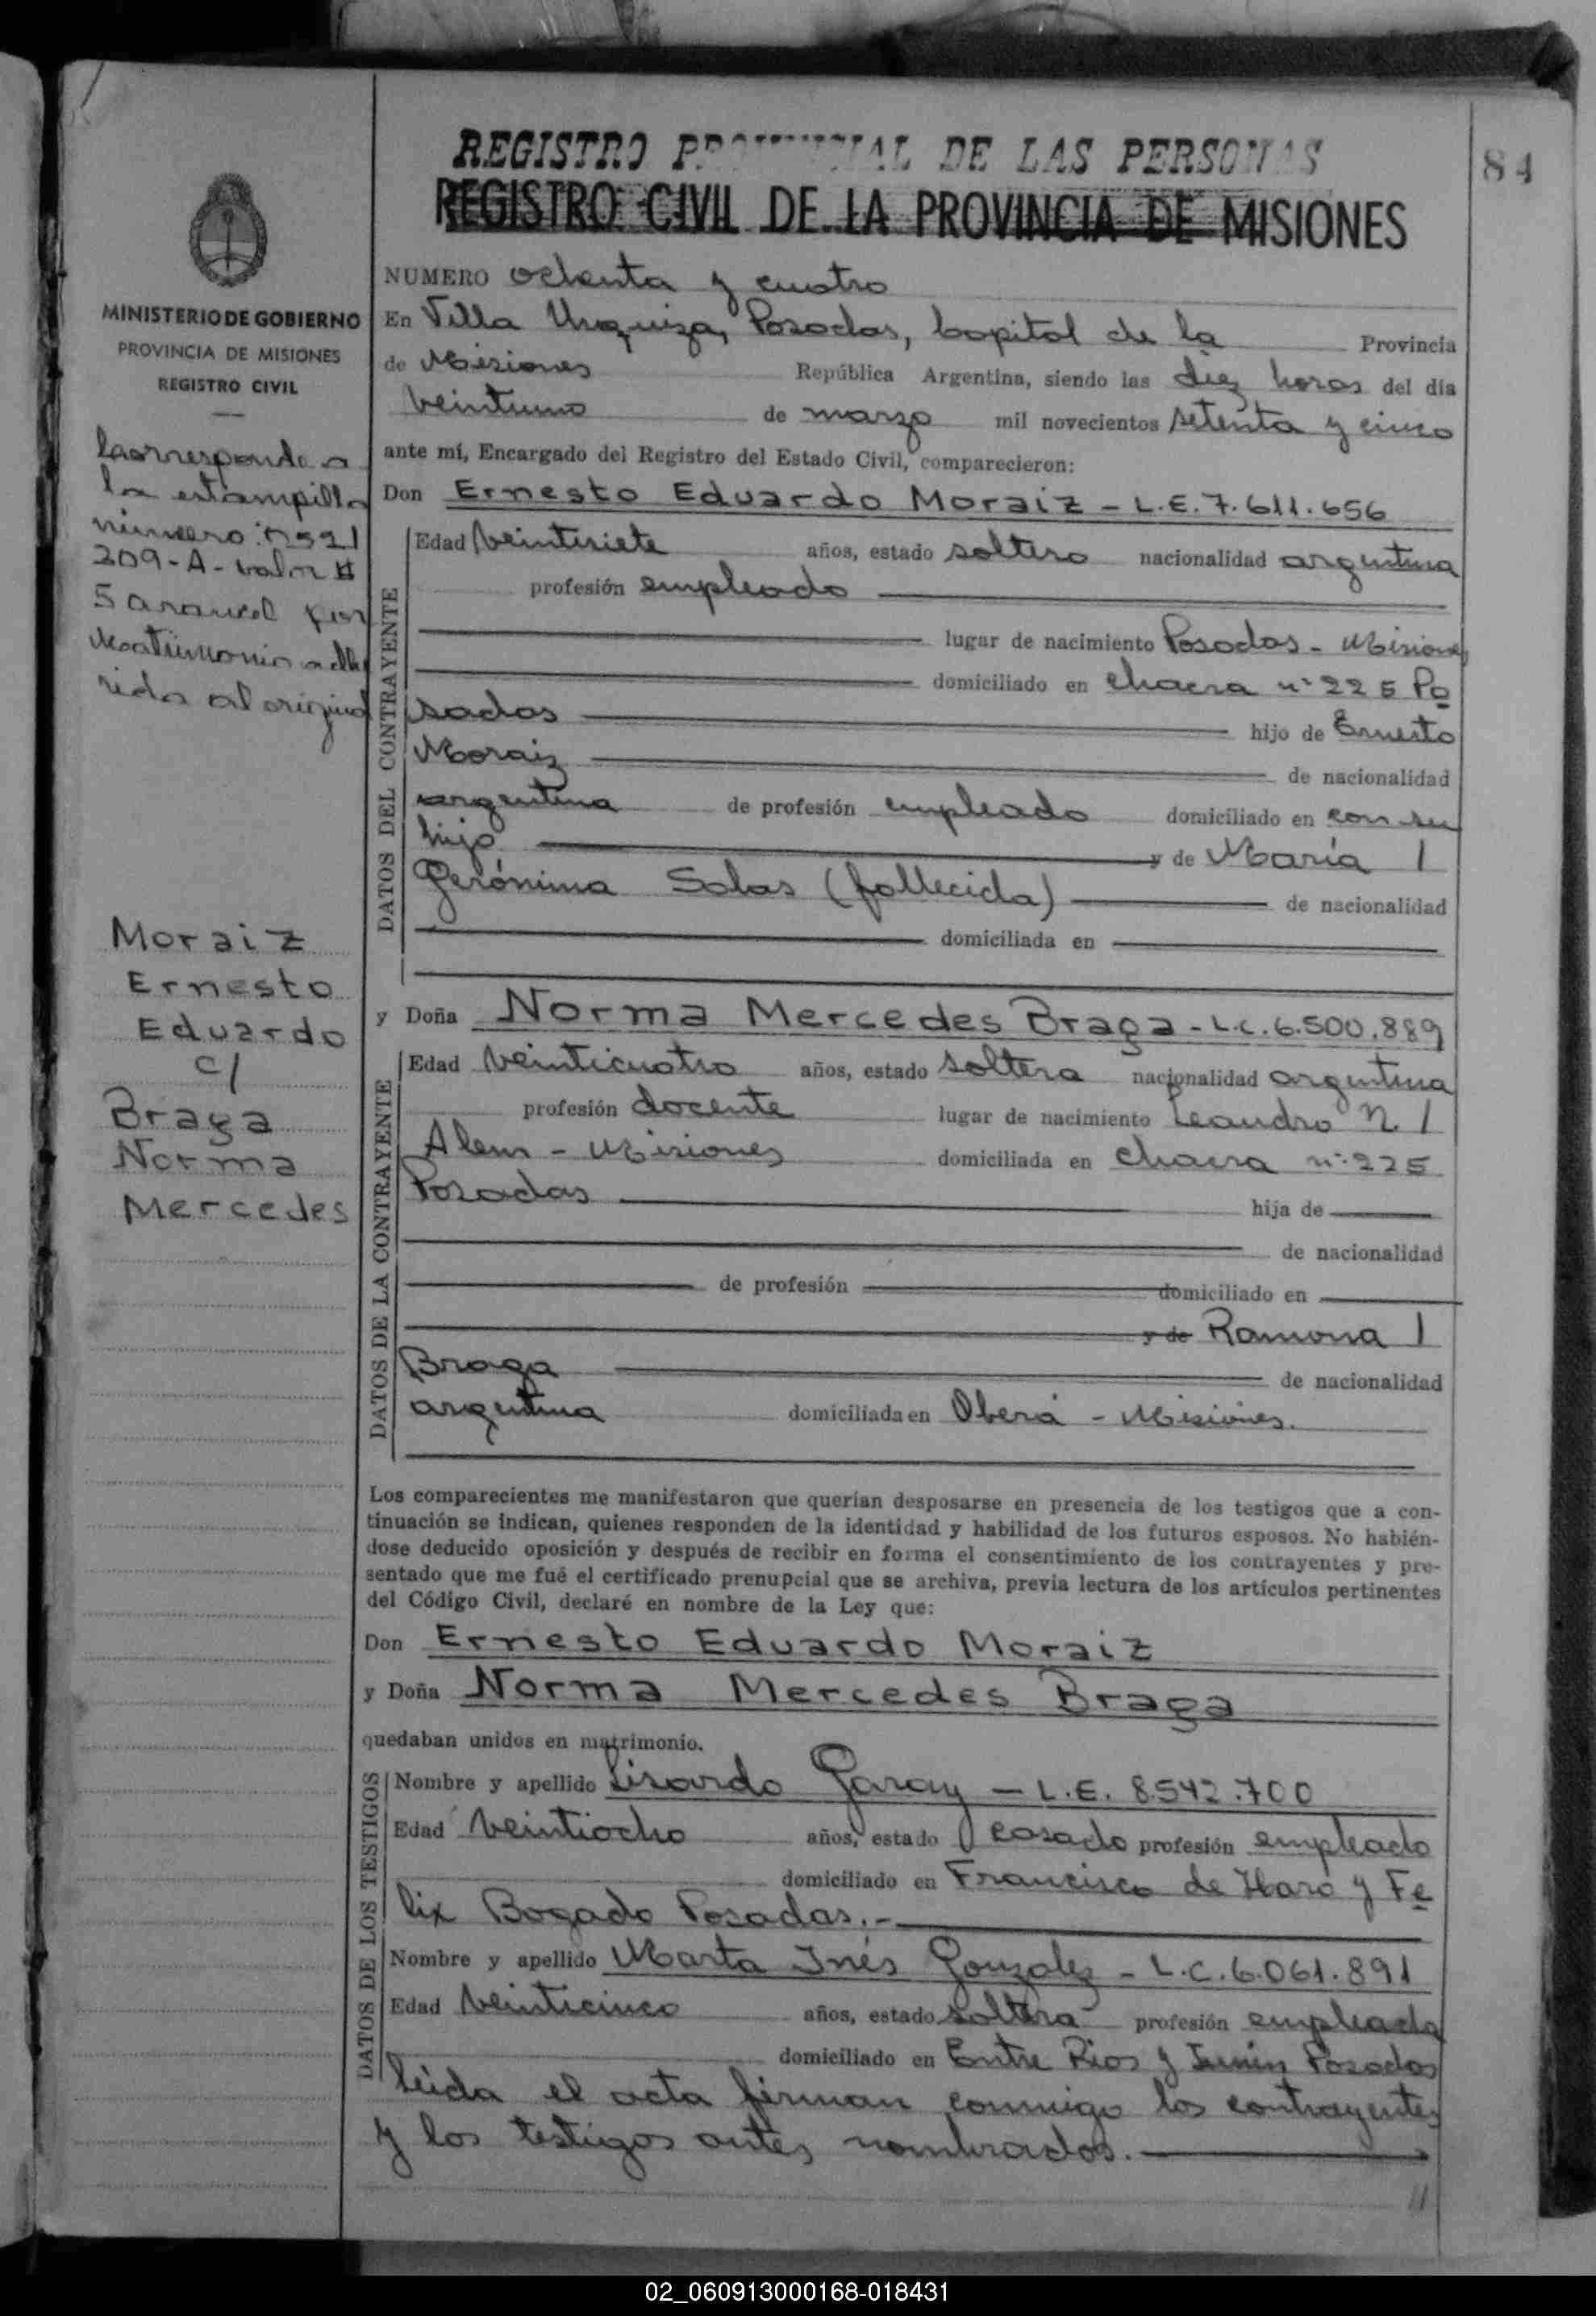 REGISTRO PROVINCIAL DE LAS PERSONAS
84
REGISTRO CIVIL DE LA PROVINCIA DE MISIONES
MINISTERIO DE GOBIERNO
PROVINCIA DE MISIONES
REGISTRO CIVIL
Corresponde a
la estampilla
número
209-A- valor $
5 arancel por
Matrimonio adhe
rida al original
Moraiz
Ernesto
Eduardo
c/
Braga
Norma
Mercedes
NUMERO ochenta y cuatro
En Villa Urquiza, Posadas, Capital de la Provincia
de Misiones República Argentina, siendo las diez horas del día
veintiuno de marzo mil novecientos setenta y cinco
ante mí, Encargado del Registro del Estado Civil, comparecieron:
Don Ernesto Eduardo Moraiz - L.E. 7.611.656
DATOS DEL CONTRAYENTE
Edad veintisiete años, estado soltero nacionalidad argentina
profesión empleado
lugar de nacimiento Posadas - Misiones
domiciliado en chacra n° 225 Po
sadas hijo de Ernesto
Moraiz de nacionalidad
argentina de profesión empleado domiciliado en con su
hijo y de María
Gerónima Salas (fallecida) de nacionalidad
domiciliada en
y Doña Norma Mercedes Braga - L.C. 6.500.889
DATOS DE LA CONTRAYENTE
Edad veinticuatro años, estado soltera nacionalidad argentina
profesión docente lugar de nacimiento Leandro N.
Alem - Misiones domiciliada en chacra n° 225
Posadas hija de
de nacionalidad
de profesión domiciliado en
y de Ramona
Braga de nacionalidad
argentina domiciliada en Oberá - Misiones.
Los comparecientes me manifestaron que querían desposarse en presencia de los testigos que a con-
tinuación se indican, quienes responden de la identidad y habilidad de los futuros esposos. No habién-
dose deducido oposición y después de recibir en forma el consentimiento de los contrayentes y pre-
sentado que me fué el certificado prenupcial que se archiva, previa lectura de los artículos pertinentes
del Código Civil, declaré en nombre de la Ley que:
Don Ernesto Eduardo Moraiz
y Doña Norma Mercedes Braga
quedaban unidos en matrimonio.
DATOS DE LOS TESTIGOS
Nombre y apellido Lisardo Garay - L.E. 8.542.700
Edad veintiocho años, estado casado profesión empleado
domiciliado en Francisco de Haro y Fe
lix Bogado Posadas.-
Nombre y apellido Marta Inés Gonzalez - L.C. 6.061.891
Edad veinticinco años, estado soltera profesión empleada
domiciliado en Entre Rios y Junín Posadas
Leida el acta firman conmigo los contrayentes
y los testigos antes nombrados.
02_060913000168-018431